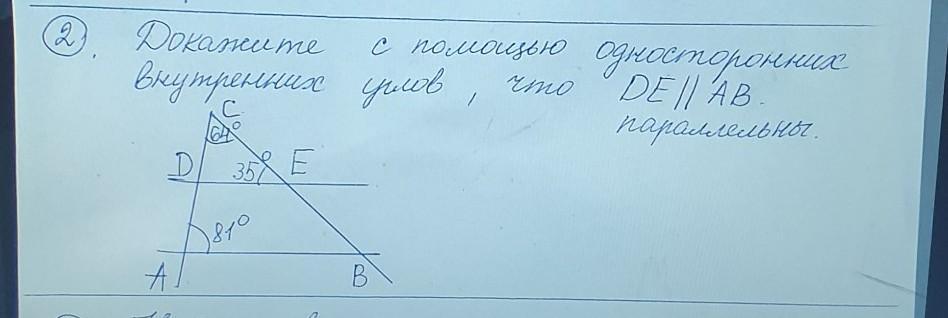 2. Докажите с помощью односторонних
внутренних углов, что DE || AB.
параллельны.
C
64°
D 35° E
81°
A B